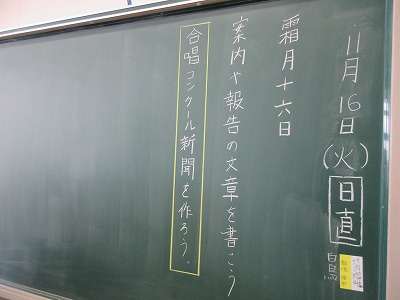 11月16日(火)日直
霜月十六日
案内や報告の文章を書こう
合唱コンクール新聞を作ろう。